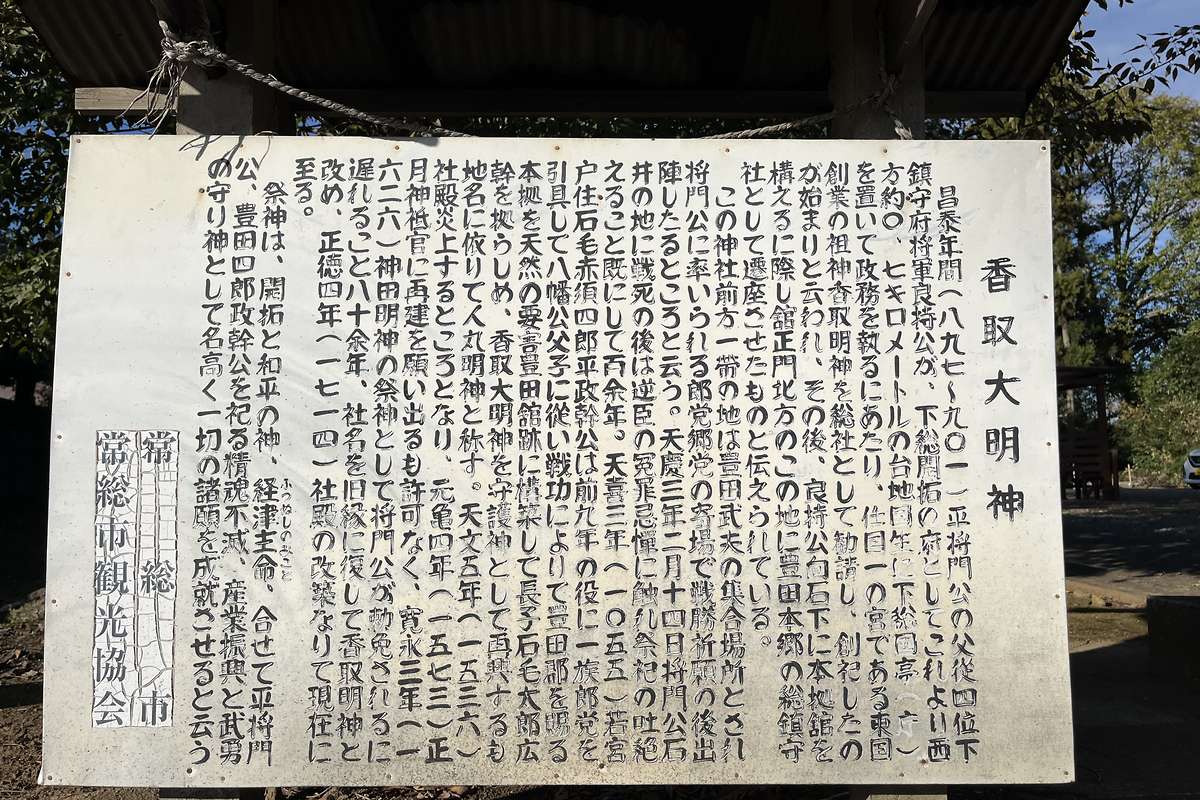 香取大明神
昌泰年間(八九七~九〇一)平将門公の父従四位下
鎮守府将軍良持公が、下総開拓の府としてこれより西
方約〇、七キロメートルの台地国生に下総国亭(庁)
を置いて政務を執るにあたり、仕国一の宮である東国
創業の祖神香取明神を総社として勧請し、創祀したの
が始まりと云われ、その後、良持公向石下に本拠館を
構えるに際し館正門北方のこの地に豊田本郷の総鎮守
社として遷座させたものと伝えられている。
この神社前方一帯の地は豊田武夫の集合場所とされ
将門公に率いられる郎党郷党の寄場で戦勝祈願の後出
陣したるところと云う。天慶三年二月十四日将門公石
井の地に戦死の後は逆臣の冤罪忌憚に触れ祭祀の吐絶
えること既にして百余年。天喜三年(一〇五五)若宮
戸住石毛赤須四郎平政幹公は前九年の役に一族郎党を
引具して八幡公父子に従い戦功によりて豊田郡を賜る
本拠を天然の要害豊田館跡に構築して長子石毛太郎広
幹を拠らしめ、香取大明神を守護神として再興するも
地名に依りて人丸明神と称す。天文五年(一五三六)
社殿炎上するところとなり、元亀四年(一五七三)正
月神祇官に再建を願い出るも許可なく、寛永三年(一
六二六)神田明神の祭神として将門公が勅免されるに
遅れること八十余年、社名を旧縁に復して香取明神と
改め、正徳四年(一七一四)社殿の改築なりて現在に
至る。
祭神は、開拓と和平の神、経津主命、合せて平将門
ふつぬしのみこと
公、豊田四郎政幹公を祀る精魂不滅、産業振興と武勇
の守り神として名高く一切の諸願を成就させると云う
常総市
常総市観光協会